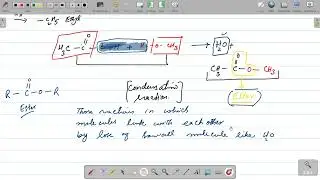 → C₂H₅ Ethyl
H₃C - C - O-H + H - O - CH₃ → H₂O +
O
O
CH₃ - C - O - CH₃
Ester
[Condensation reaction.]
O
R - C - O - R
Ester
Those reactions in which
molecules link with each other
by loss of small molecule like H₂O